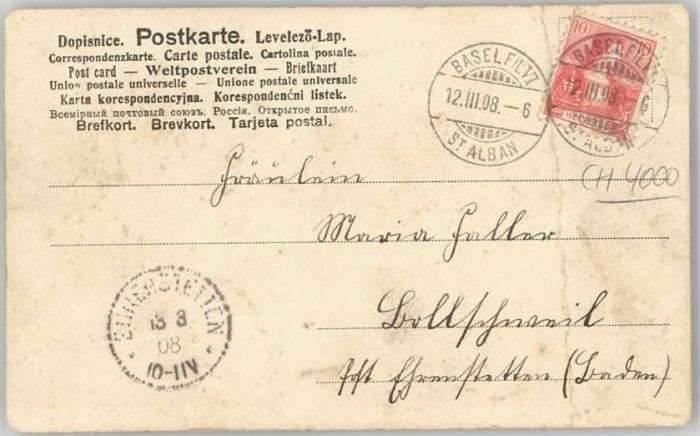 Dopisnice. Postkarte. Levelező-Lap.
Correspondenzkarte. Carte postale. Cartolina postale.
Post card — Weltpostverein — Briefkaart
Union postale universelle — Unione postale universale
Karta korespondencyjna. Korespondenční listek.
Всемірный почтовый союзъ. Россія. Открытое письмо.
Brefkort. Brevkort. Tarjeta postal.
BASEL FIL. VI
12.III.08. – 6
ST. ALBAN
10
BASEL FIL. VI
12.III.08. – 6
ST. ALBAN
CH 4000
Fräulein
Maria Faller
Bollschweil
Pst Ehrenstetten (Baden)
EHRENSTETTEN
13 3
08
10-11V